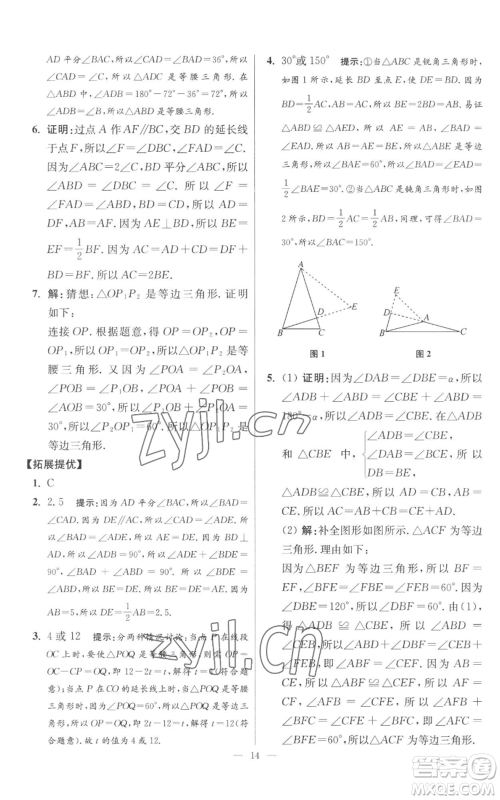 AD 平分∠BAC,所以∠BAD=∠CAD=36°,所以
∠BAD=∠ABC,所以△ABD 是等腰三角形.因为
∠ADC=180°-72°-36°=72°,所以∠ADC=
∠C,所以 AD=AC,所以△ADC 是等腰三角形.
6. 证明:过点 A 作 AF∥BC,交 BD 的延长线
于点 F,所以∠F=∠DBC,∠FAD=∠C.
因为∠ABC=2∠C,BD 平分∠ABC,所以
∠ABD=∠DBC=∠C.所以∠F=
∠FAD=∠ABD,所以 AB=AF,AD=
DF,AB=AF.因为 AE⊥BD,所以 BE=
EF=1/2BF.因为 AC=AD+CD=DF+
BD=BF.所以 AC=2BE.
7. 解:猜想:△OP₁P₂ 是等边三角形.证明
如下:
连接 OP.根据题意,得 OP=OP₂,OP=
OP₁,所以 OP₁=OP₂,所以△OP₁P₂ 是等
腰三角形.又因为∠POA=∠P₁OA,
∠POB=∠P₂OB,∠POA+∠POB=
30°,所以∠P₁OP₂=60°.所以△OP₁P₂ 是
等边三角形.
【拓展提优】
1. C
2. 2.5 提示:因为 AD 平分∠BAC,所以∠BAD=
∠CAD.因为 DE∥AC,所以∠CAD=∠ADE,所以
∠BAD=∠ADE,所以 AE=DE.因为 BD⊥
AD,所以∠ADB=90°,所以∠ADE+∠BDE=
90°.所以∠ABD=∠BDE,所以 DE=BE.因为
AB=5,所以 DE=1/2AB=2.5.
3. 4 或 12 提示:分两种情况讨论:当点 P 在线段
OC 上时,要使△POQ 是等腰三角形,所以 OP=
OC-CP=OQ,即 12-2t=t,解得 t=4(符合题
意);当点 P 在 CO 的延长线上时,要使△POQ 是
等腰三角形,因为∠POQ=60°,所以△POQ 是等
边三角形,所以 OP=OQ,即 2t-12=t,解得 t=12(符
合题意).故 t 的值为 4 或 12.
4. 30°或 150° 提示:①当△ABC 是锐角三角形时,
如图 1,延长 BD 至点 E,使 DE=BD.因为
BD=1/2AC,AB=AC,所以 BE=2BD=AB.易得
△ABD≌△AED,所以 AE=AB=BE,所以
△ABE 是等边三角形,所以∠BAE=60°,所以∠BAD=
1/2∠BAE=30°.②当△ABC 是钝角三角形时,如图
2 所示,BD=1/2AB,AB=AC,同理,可得∠BAD=
30°,所以∠BAC=150°.
A
D
E
B
C
图 1
E
D
A
B
C
图 2
5. (1) 证明:因为∠DAB=∠DBE=α,
所以∠ADB+∠ABD=∠CBE+∠ABD=
180°-α,所以∠ADB=∠CBE.在△ADB
和△CBE 中,
∠ADB=∠CBE,
∠DAB=∠BCE,
DB=BE,
所以△ADB≌△CBE,所以 AD=CB,AB=
CE,所以 AC=AB+BC=AD+CE.
(2) 解:补全图形如图所示.△ACF 为等边
三角形.理由如下:
因为△BEF 为等边三角形,所以∠BFE=
∠FBE=∠BEF=60°,BF=EF.因为
∠DBE=120°,所以∠DBF=60°.由(1),
得∠ADB=∠CBE,所以∠ADB+
∠DBF=∠CBE+∠BEF,即∠ADF=
∠CEF.因为 AD=CE,所以△ADF≌
△CEF,所以 AF=CF,∠AFD=∠CFE,
所以∠AFC=∠AFD+∠CFD=∠CFE+
∠CFD=60°,所以△ACF 为等边三角形.
— 14 —
zyjl.cn
zyjl.cn
答案圈
MXQE.COM